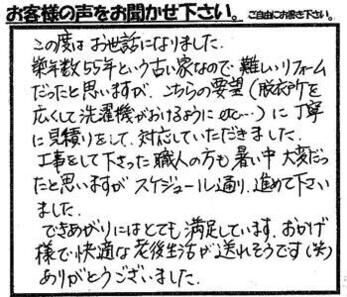 お客様の声をお聞かせ下さい。ご自由にお書き下さい。
この度はお世話になりました.
築年数55年という古い家なので難しいリフォーム
だったと思いますが、こちらの要望(脱衣所を
広くして洗濯機がおけるように etc…)に丁寧
に見積りをして、対応していただきました.
工事をして下さった職人の方も暑い中大変だっ
たと思いますがスケジュール通り、進めて下さい
ました.
できあがりにはとても満足しています.おかげ
様で快適な老後生活が送れそうです(笑)
ありがとうございました.